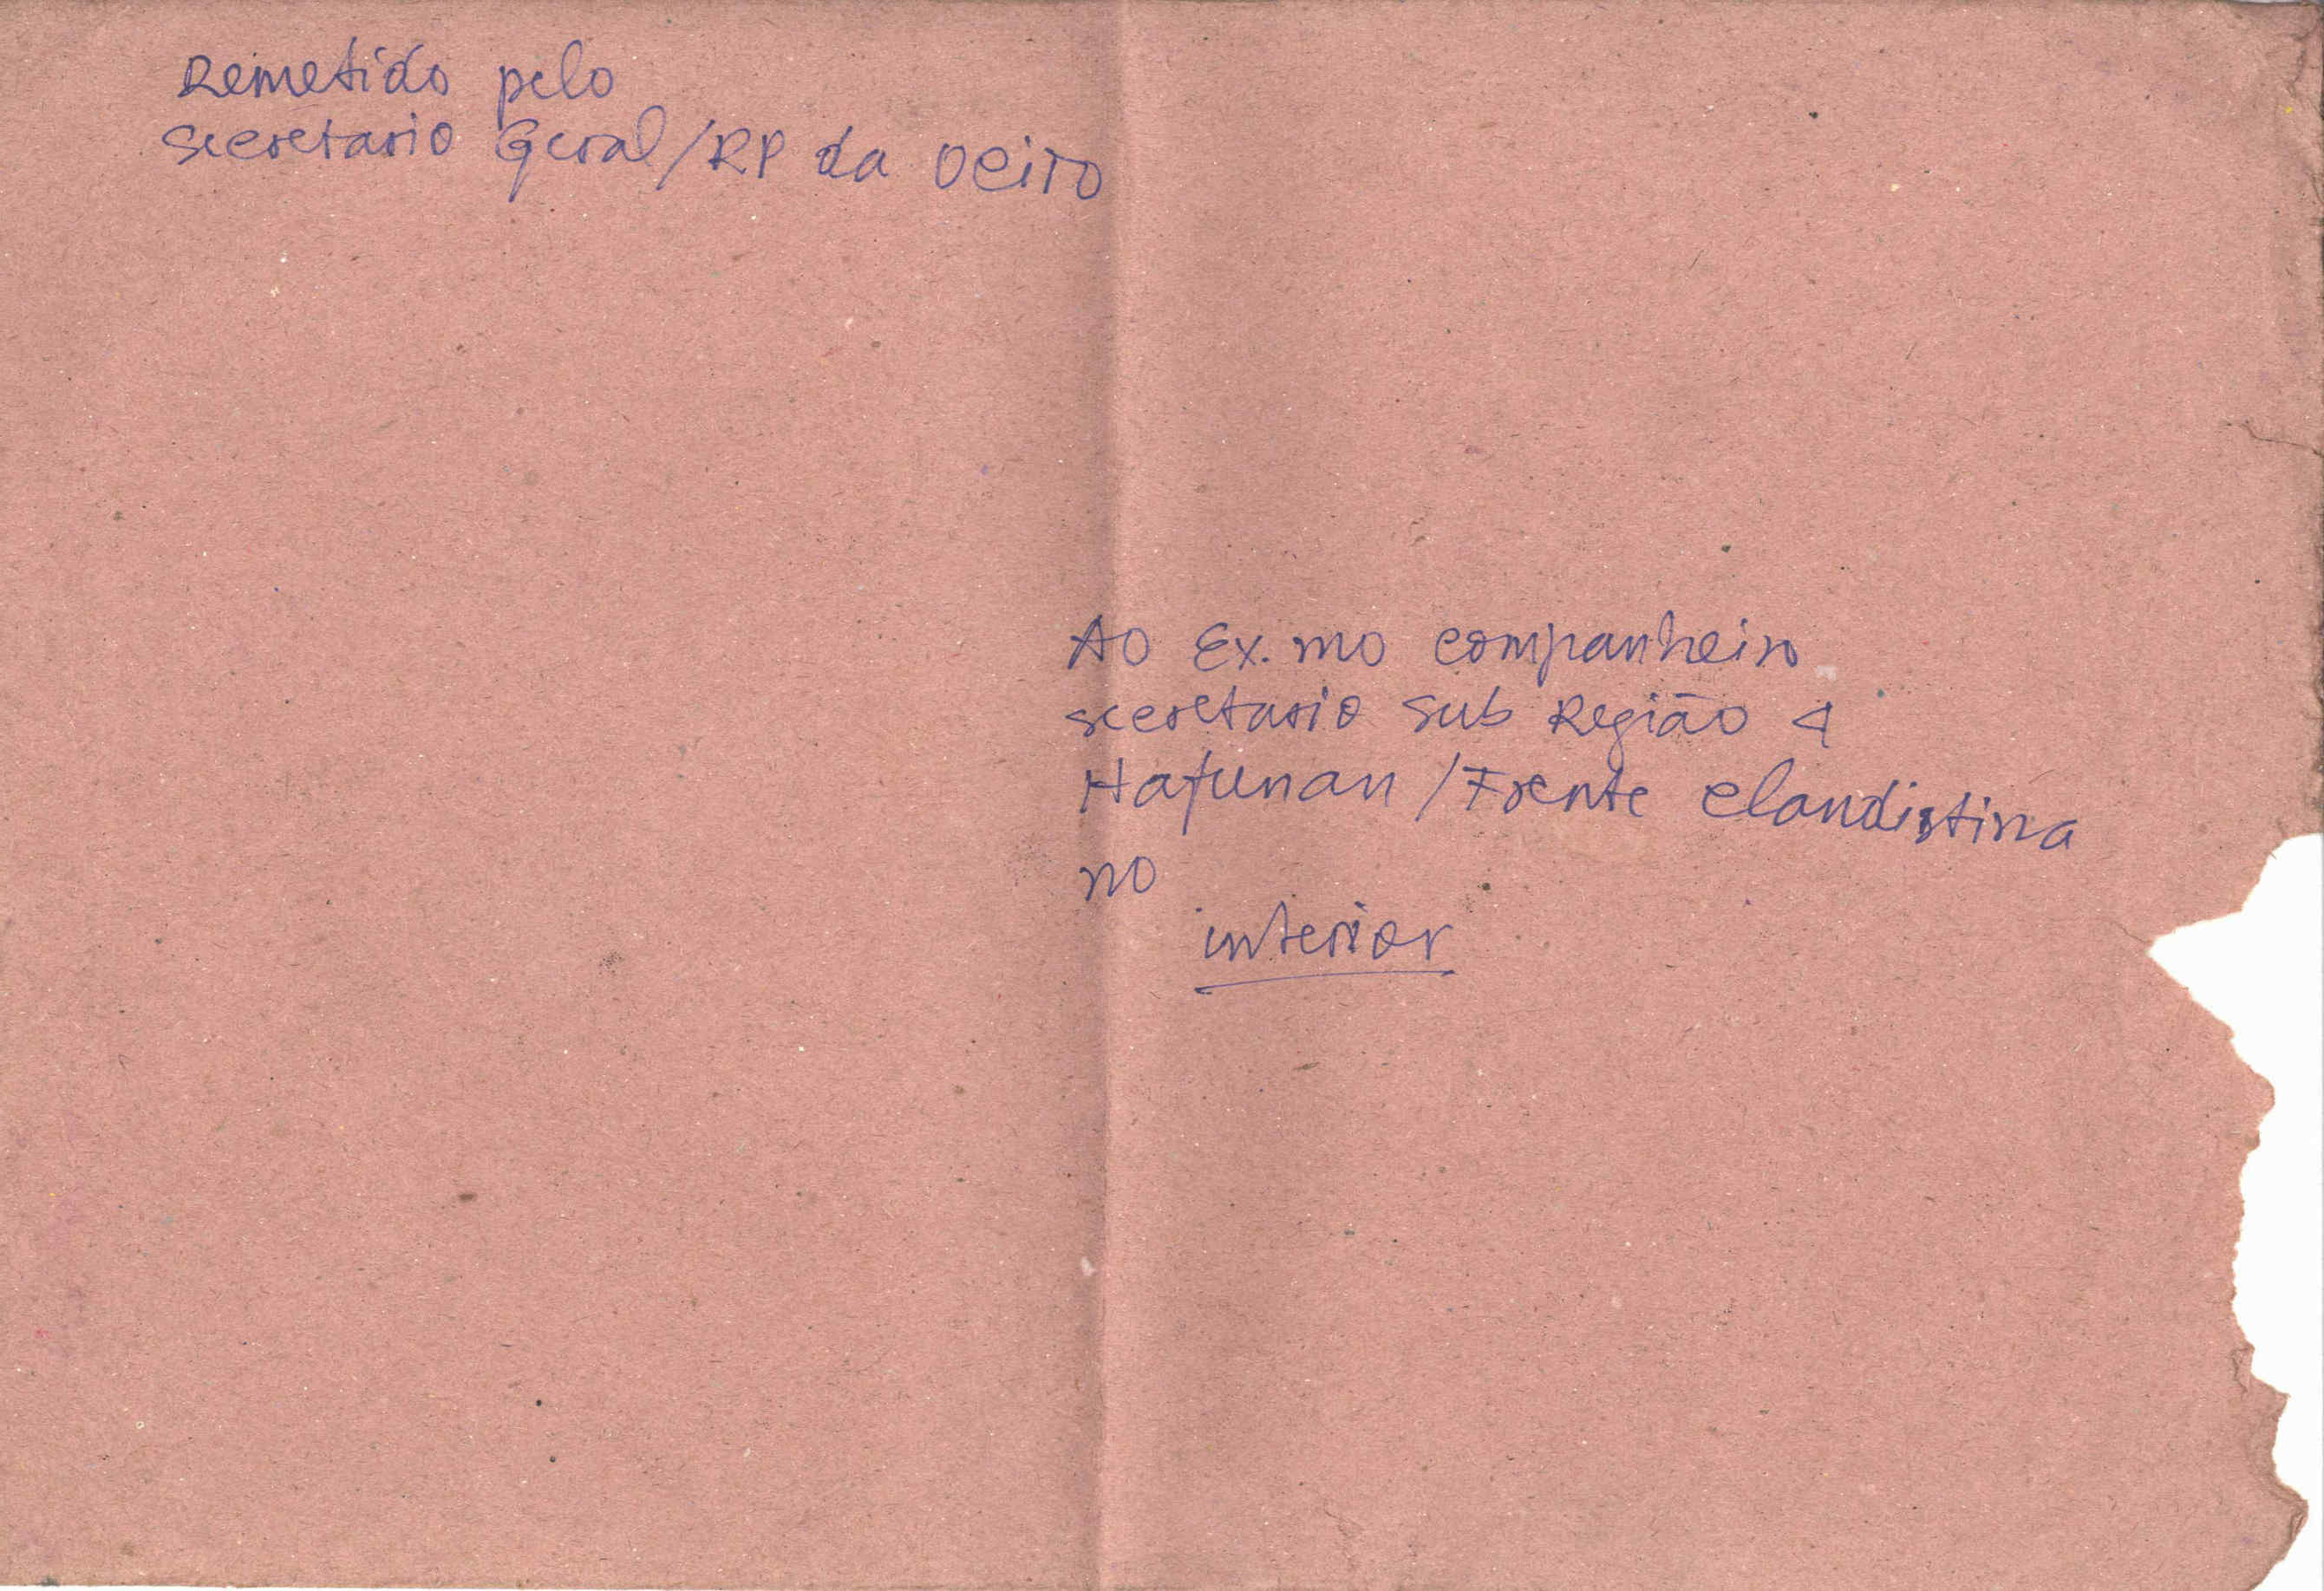 Remetido pelo
Secretario Geral/RP da OCITO
Ao Ex.mo companheiro
secretario Sub Região 4
Hafunan/Frente clandistina
no
interior